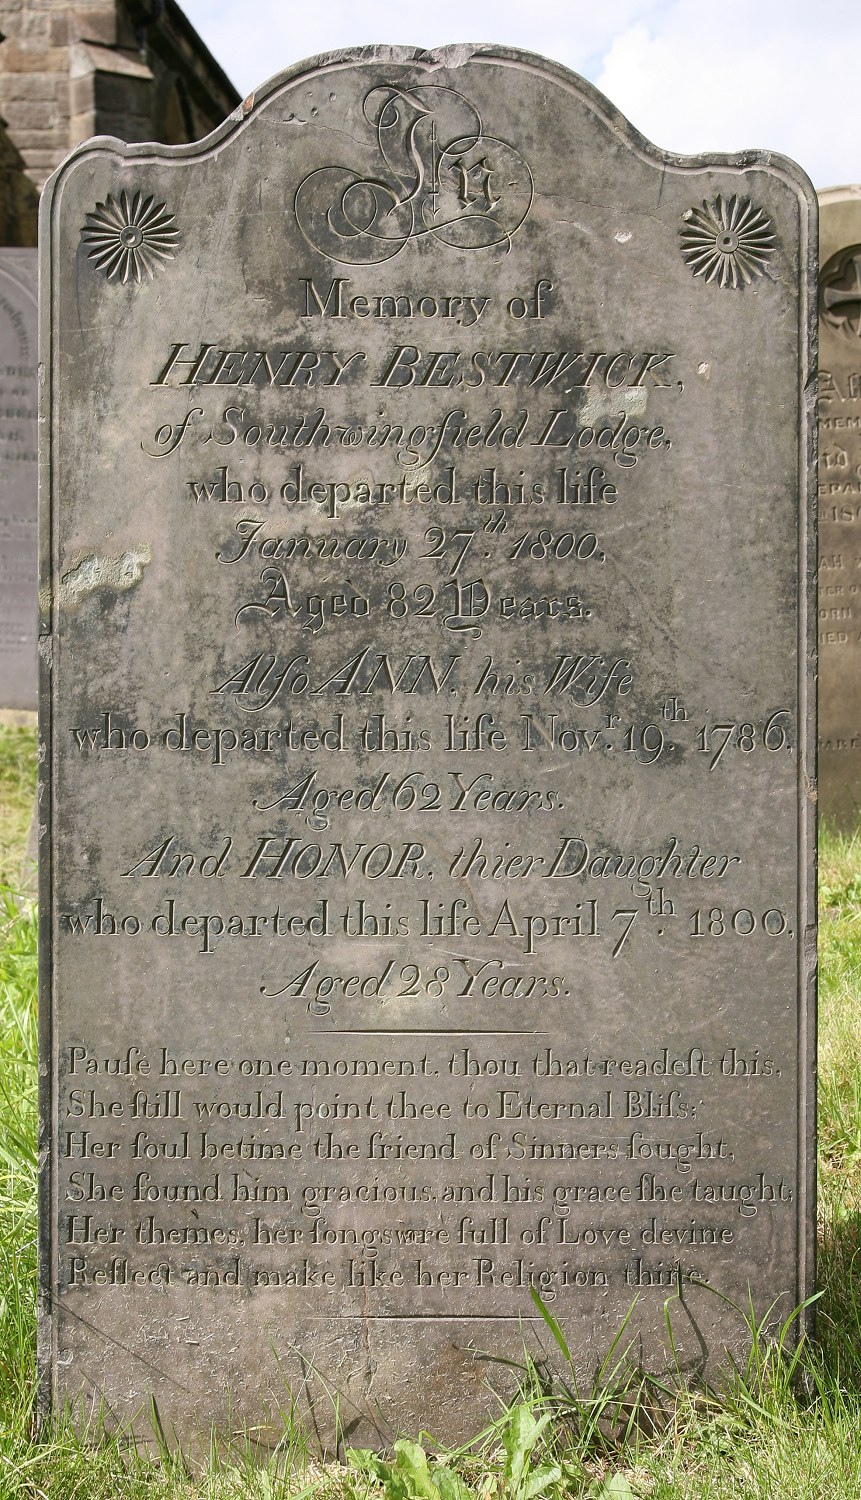 In
Memory of
HENRY BESTWICK,
of Southwingfield Lodge,
who departed this life
January 27th. 1800,
Aged 82 Years.
Alſo ANN, his Wife
who departed this life Novr. 19th. 1786,
Aged 62 Years.
And HONOR, thier Daughter
who departed this life April 7th. 1800,
Aged 28 Years.
Pauſe here one moment, thou that readeſt this,
She ſtill would point thee to Eternal Bliſs;
Her ſoul betime the friend of Sinners ſought,
She found him gracious, and his grace ſhe taught;
Her themes, her ſongs were full of Love devine
Reflect and make like her Religion thine.